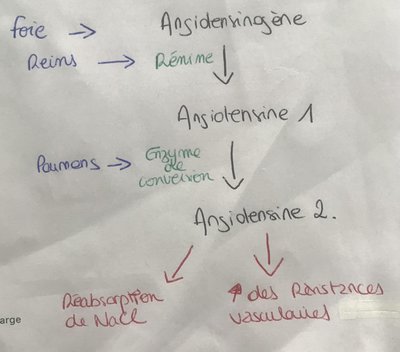 foie → Angiotensinogène
Reins → Rénine
Angiotensine 1
Poumons → Enzyme
de
conversion
Angiotensine 2.
Réabsorption
de NaCl
↑ des Résistances
vasculaires
arge